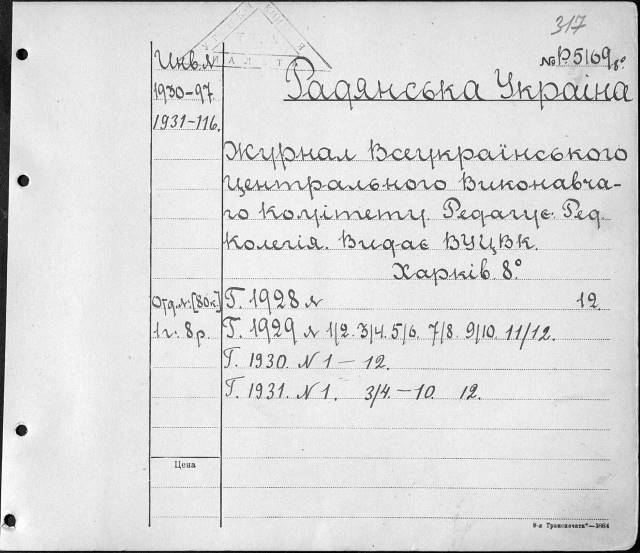 317
Инв. №
1930-97
1931-116.
№ Р5169 8°
Радянська Україна
Журнал Всеукраїнського
центрального Виконавча-
го Комітету. Редагує Ред.
колегія. Видає ВУЦВК.
Харків. 8°
Отд. №: [80к.]
1г: 8р.
Г. 1928 № 12.
Г. 1929 № 1/2. 3/4. 5/6. 7/8. 9/10. 11/12.
Г. 1930. № 1 — 12.
Г. 1931. № 1. 3/4. — 10. 12.
Цена
8-я Транспечать"—3864